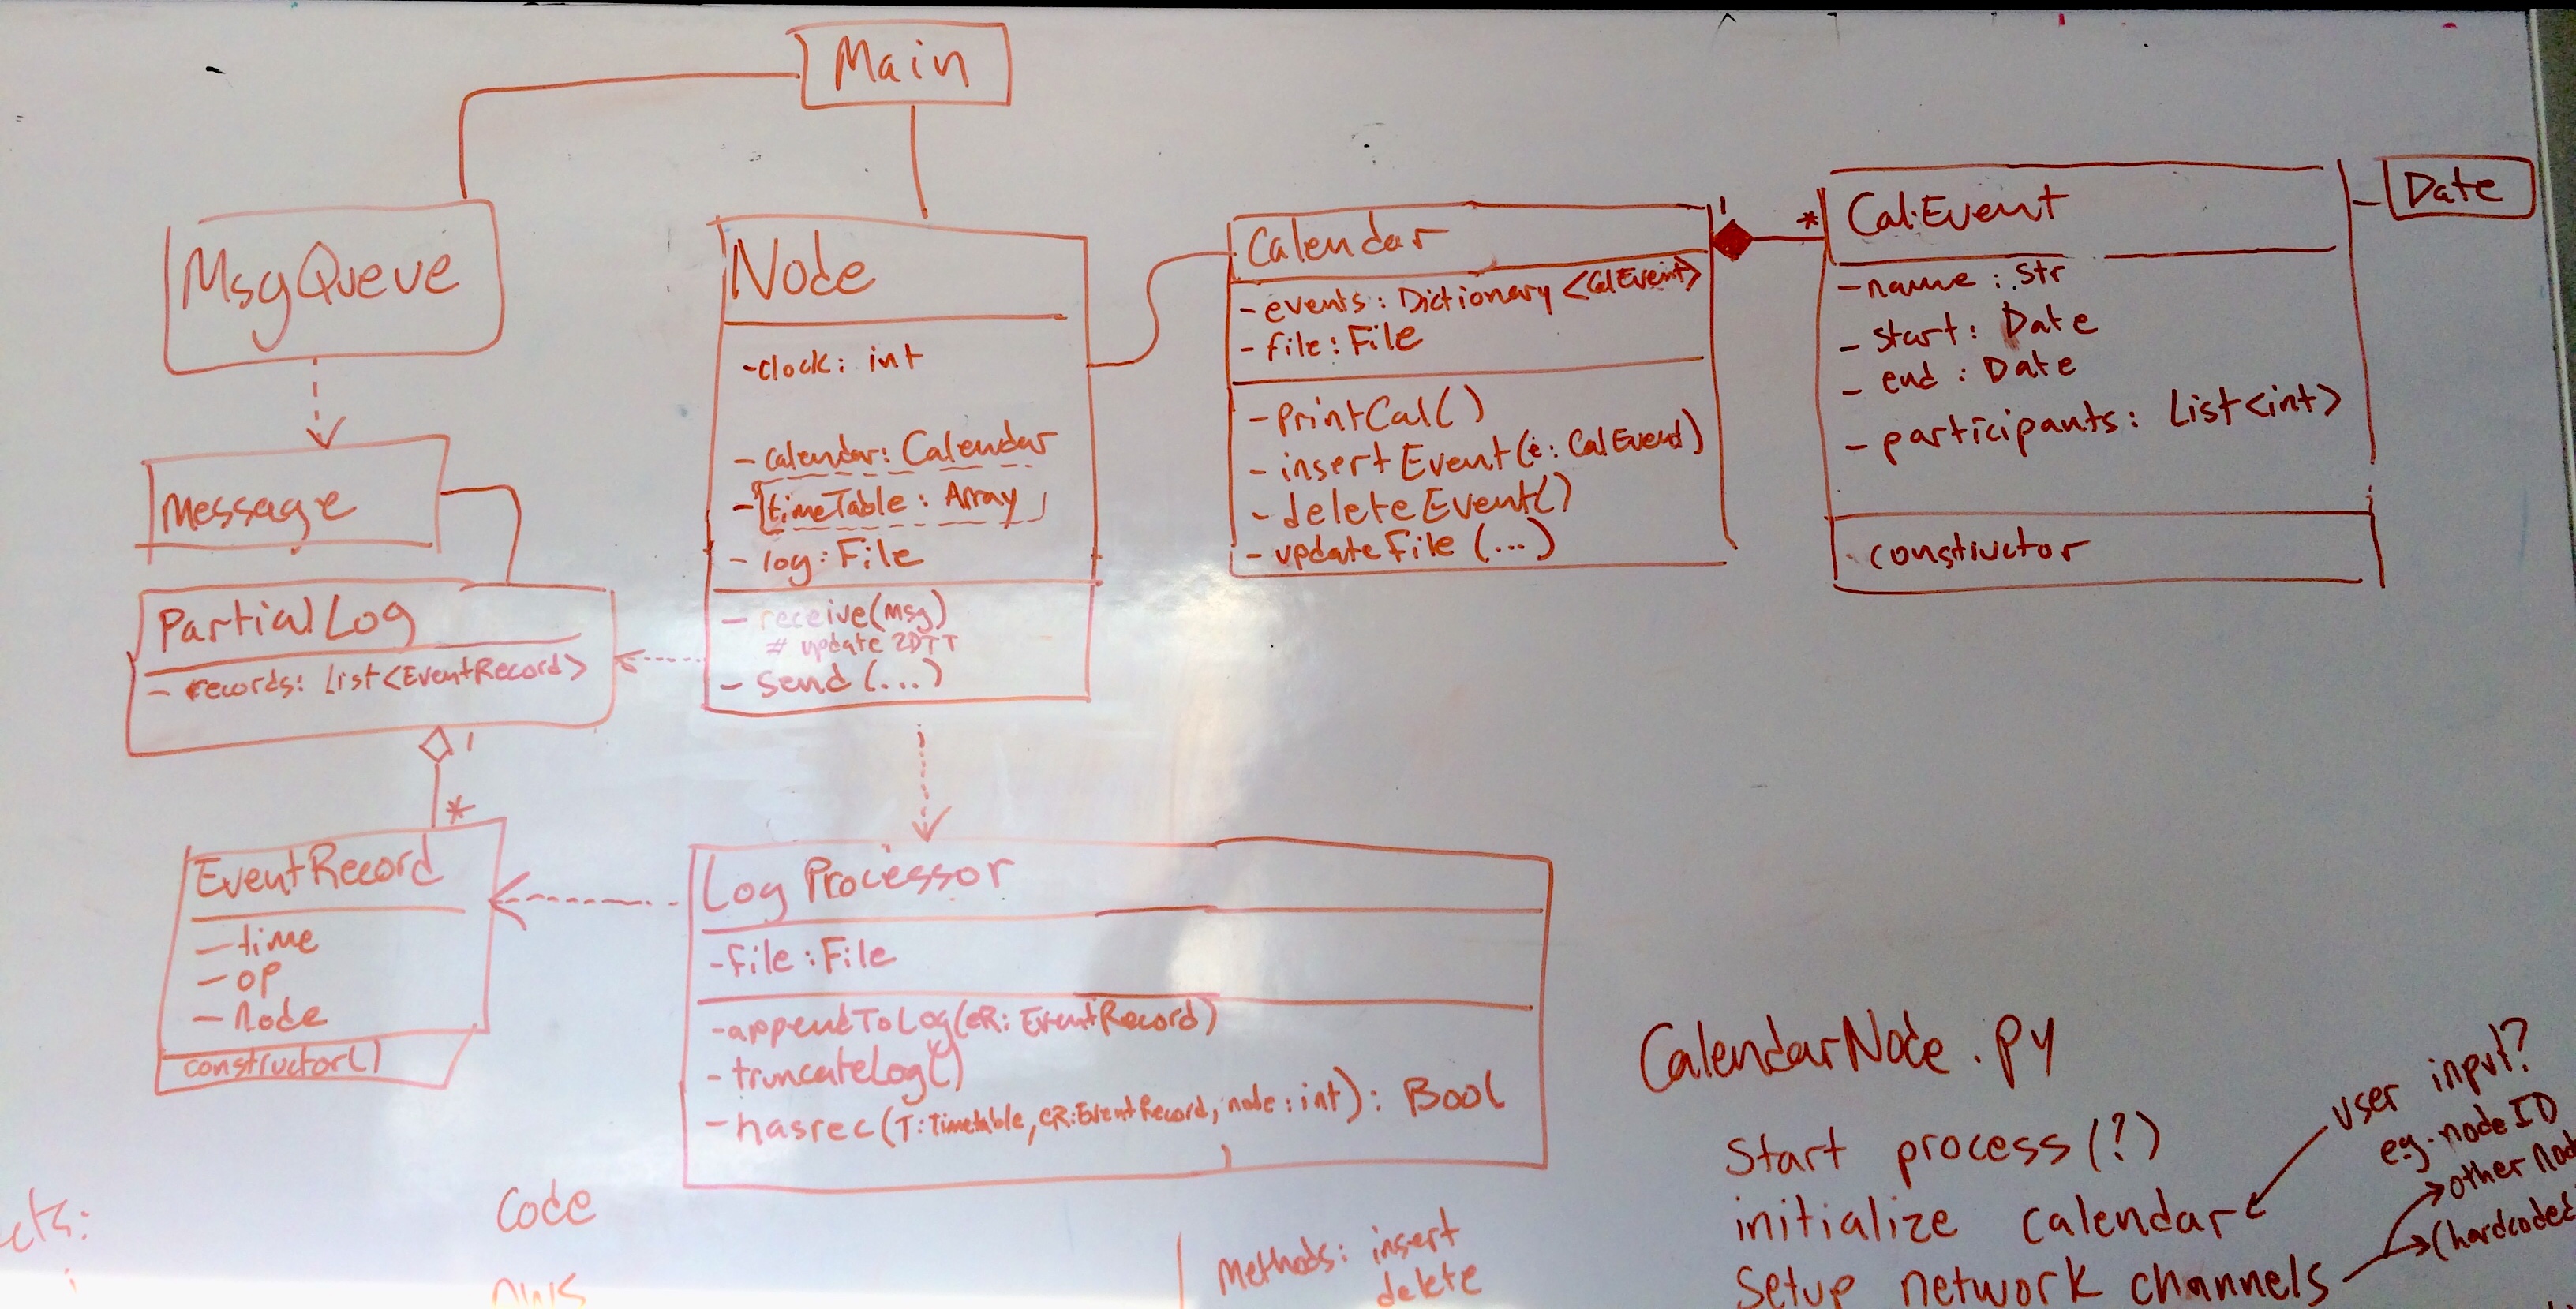 Main
MsgQueue
Message
PartialLog
- records: List<EventRecord>
1
*
EventRecord
- time
- op
- Node
constructor()
Node
- clock: int
- calendar: Calendar
- timeTable: Array
- log: File
- receive(msg)
# update 2DTT
- send (...)
Log Processor
- file: File
- appendToLog(eR: EventRecord)
- truncateLog()
- hasrec(T: Timetable, eR: EventRecord, node: int): Bool
Calendar
- events: Dictionary <CalEvent>
- file: File
- printCal()
- insertEvent(e: CalEvent)
- deleteEvent()
- updateFile (...)
1
*
CalEvent
- name: str
- start: Date
- end: Date
- participants: List<int>
constructor
Date
CalendarNode.py
Start process(?)
initialize calendar
Setup network channels
user input?
eg. nodeID
other Nod
(hardcoded
Code
Methods: insert
delete